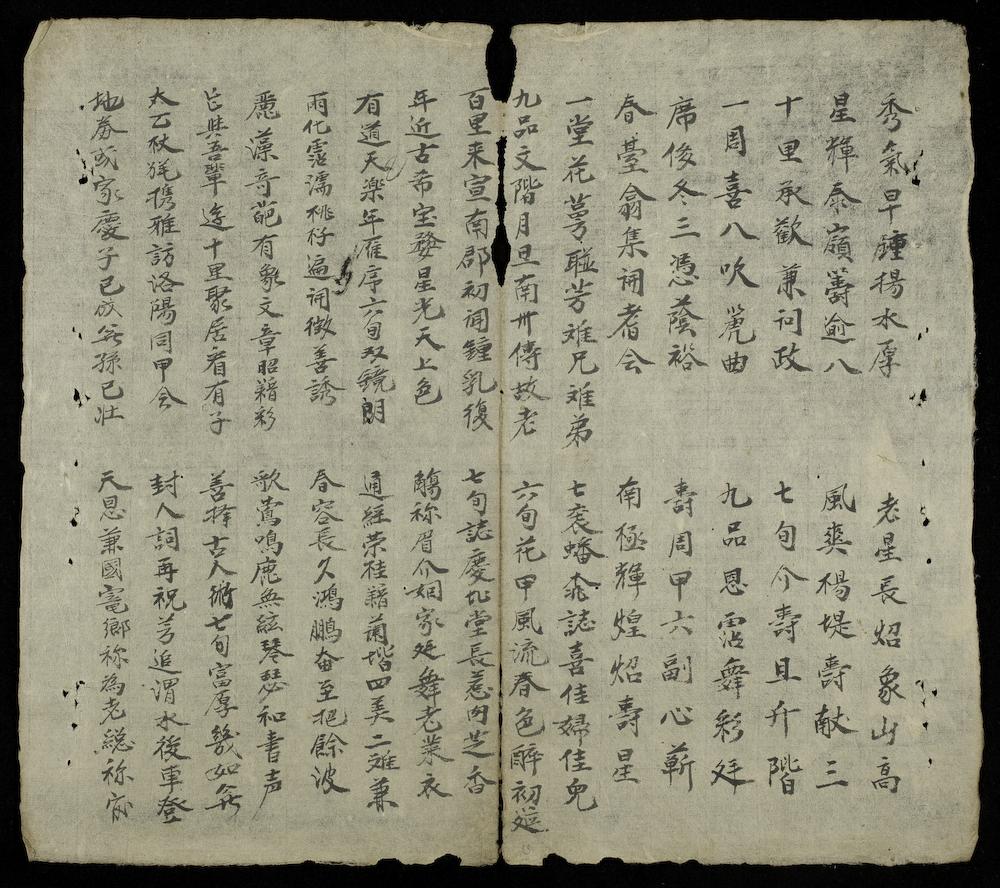 秀氣早鍾楊水厚 老星長炤象山高
星輝泰嶺籌逾八 風爽楊堤壽献三
十里承歡兼祠政 七旬介壽且升階
一周喜八吹箎曲 九品恩霑舞彩廷
席俊冬三憑蔭裕 壽周甲六副心蕲
春臺翕集詞耆会 南極輝煌炤壽星
一堂花萼聯芳难兄难弟 七袠蟠桃誌喜佳婦佳兒
九品文階月旦南州傳故老 六旬花甲風流春色醉初筵
百里来宣南郡初词鍾乳復 七旬誌慶北堂長惹肉芝香
年近古希宝婺星光天上色 觴称眉介姻家廷舞老莱衣
有道天楽年雁序六旬双鏡朗 通經荣桂籍蘭堦四美二难兼
雨化霑濡桃杍遍词徴善誘 春容長久鴻鵬奋至挹餘波
麗藻奇葩有象文章昭籍彩 歌鶯鳴鹿無絃琴瑟和書声
吾與吾輩 十里聚居看有子 善擇古人術七旬富厚幾如
太乙杖 携雅訪洛陽同甲会 封人詞再祝芳追渭水後車登
地券成家慶子已成 孫已壮 天恩兼國寵鄉称為老總称